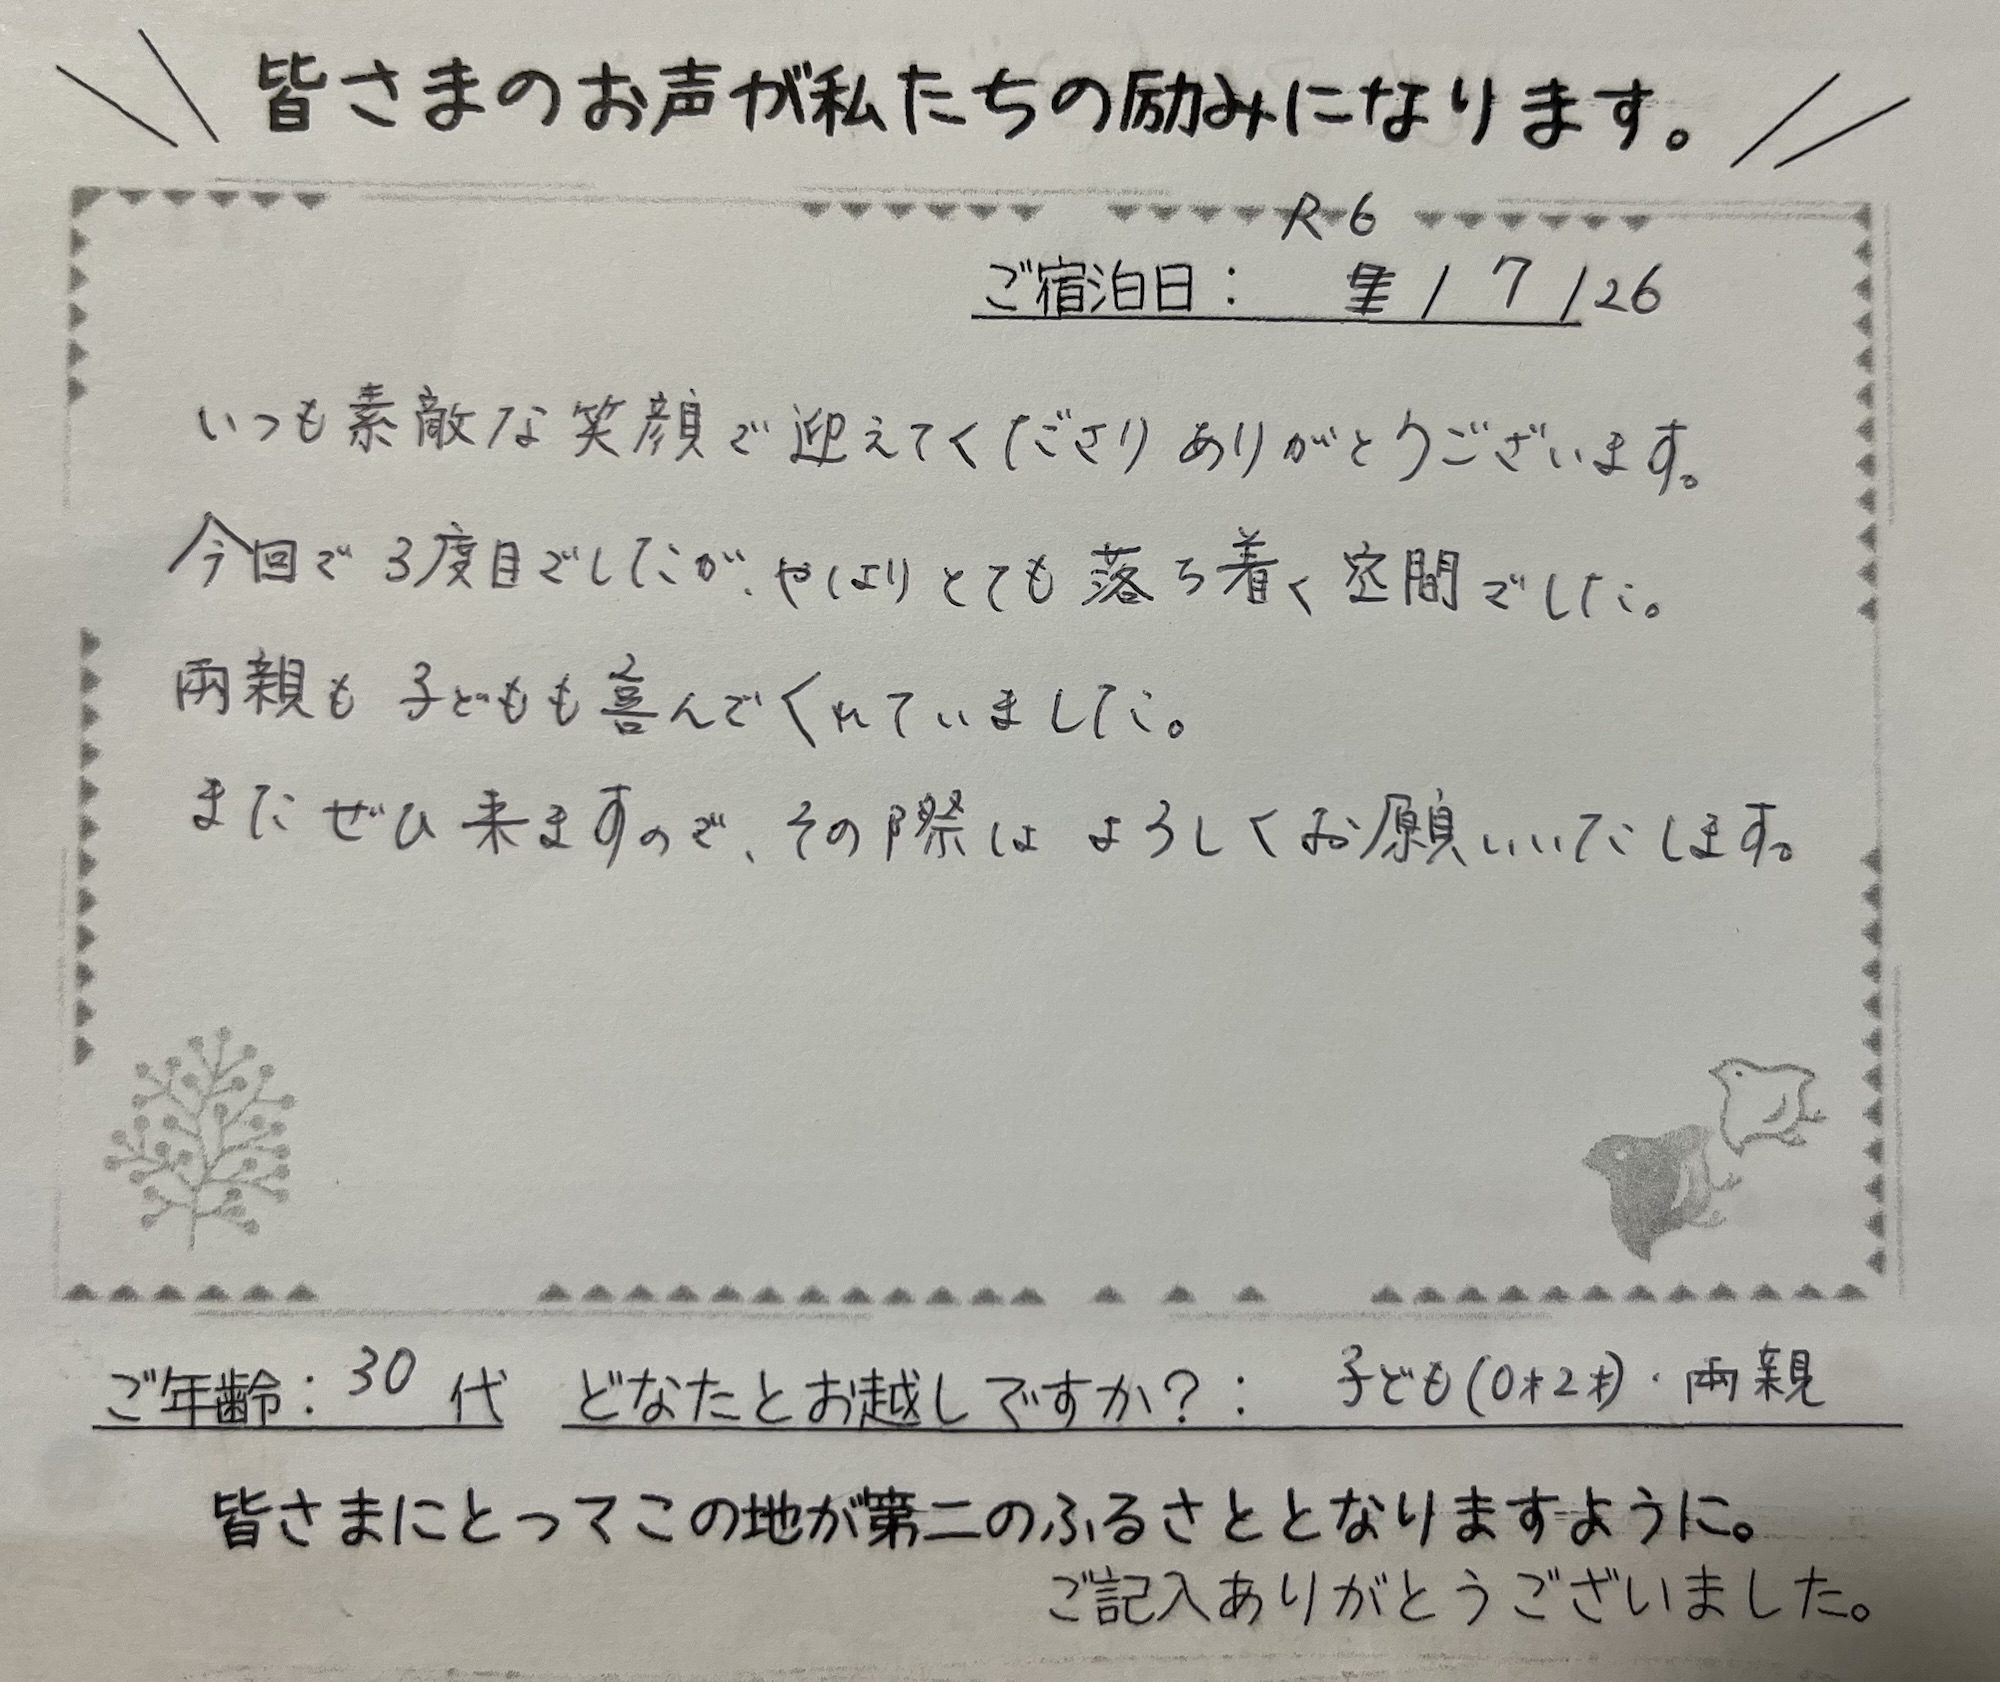 皆さまのお声が私たちの励みになります。
R6
ご宿泊日： / 7 / 26
いつも素敵な笑顔で迎えてくださりありがとうございます。
今回で3度目でしたが、やはりとても落ち着く空間でした。
両親も子どもも喜んでくれていました。
またぜひ来ますので、その際はよろしくお願いいたします。
ご年齢：30代 どなたとお越しですか？：子ども(0才2才)・両親
皆さまにとってこの地が第二のふるさととなりますように。
ご記入ありがとうございました。